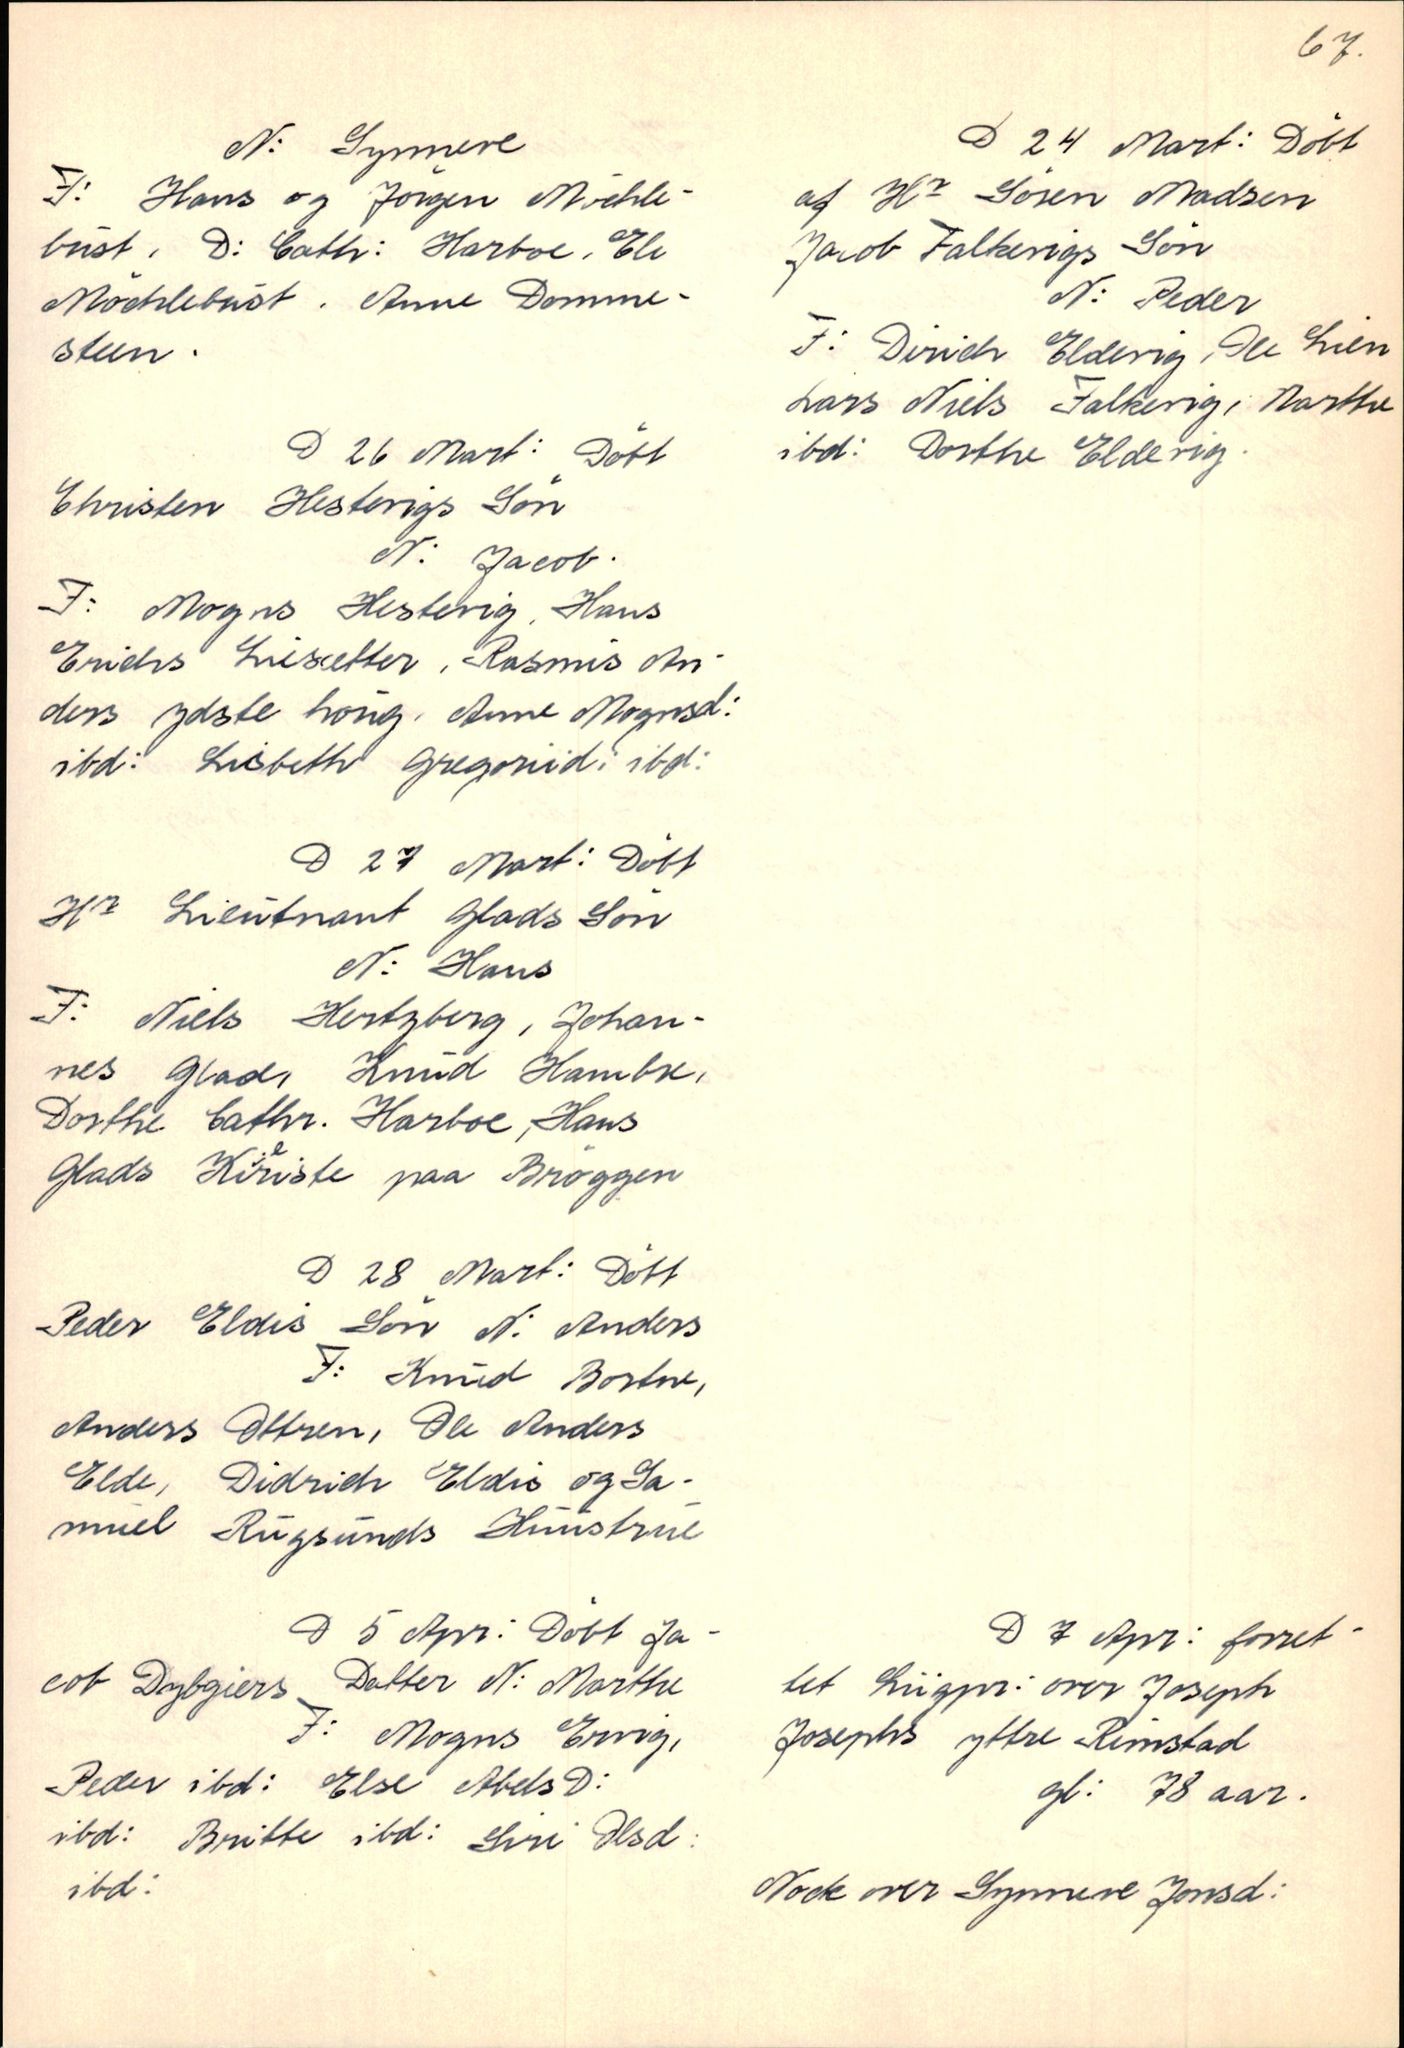 67.
N: Synneve
F: Hans og Jörgen Möchle-
bust, D: Cath: Harboe, Ele
Möchlebust. Anne Domme-
steen.
D 26 Mart: Döbt
Christen Hesterigs Sön
N: Jacob.
F: Mogns Hesterig, Hans
Erichs Liesætter, Rasmus An-
ders ydste houg, Anne Mognsd:
ibd: Lisbeth Gregoriid: ibd:
D 27 Mart: Döbt
Hr Lieutnant Glads Sön
N: Hans
F: Niels Hertzberg, Johan-
nes Glad, Knud Hambre,
Dorthe Cathr. Harboe, Hans
Glads paa Bröggen
D 28 Mart: Döbt
Peder Eldis Sön N: Anders
F: Knud Bortne,
Anders Ottren, Ole Anders
Elde, Didrich Eldis og Sa-
muel Rugsunds Huustrue
D 5 Apr: Döbt Ja-
cob Dybgiers Datter N: Marthe
F: Mogns Ervig,
Peder ibd: Else Abels D:
ibd: Britte ibd: Siri Olsd:
ibd:
D 24 Mart: Döbt
af Hr Sören Madsen
Jacob Falkevigs Sön
N: Peder
F: Dirich Elderig, Ole Lien
Lars Niels Falkevig, Marthe
ibd: Dorthe Elderig.
D 7 Apr: forret-
tet Liigpr: over Joseph
Josephs yttre Rimstad
gl: 78 aar.
Nock over Synneve Jonsd: